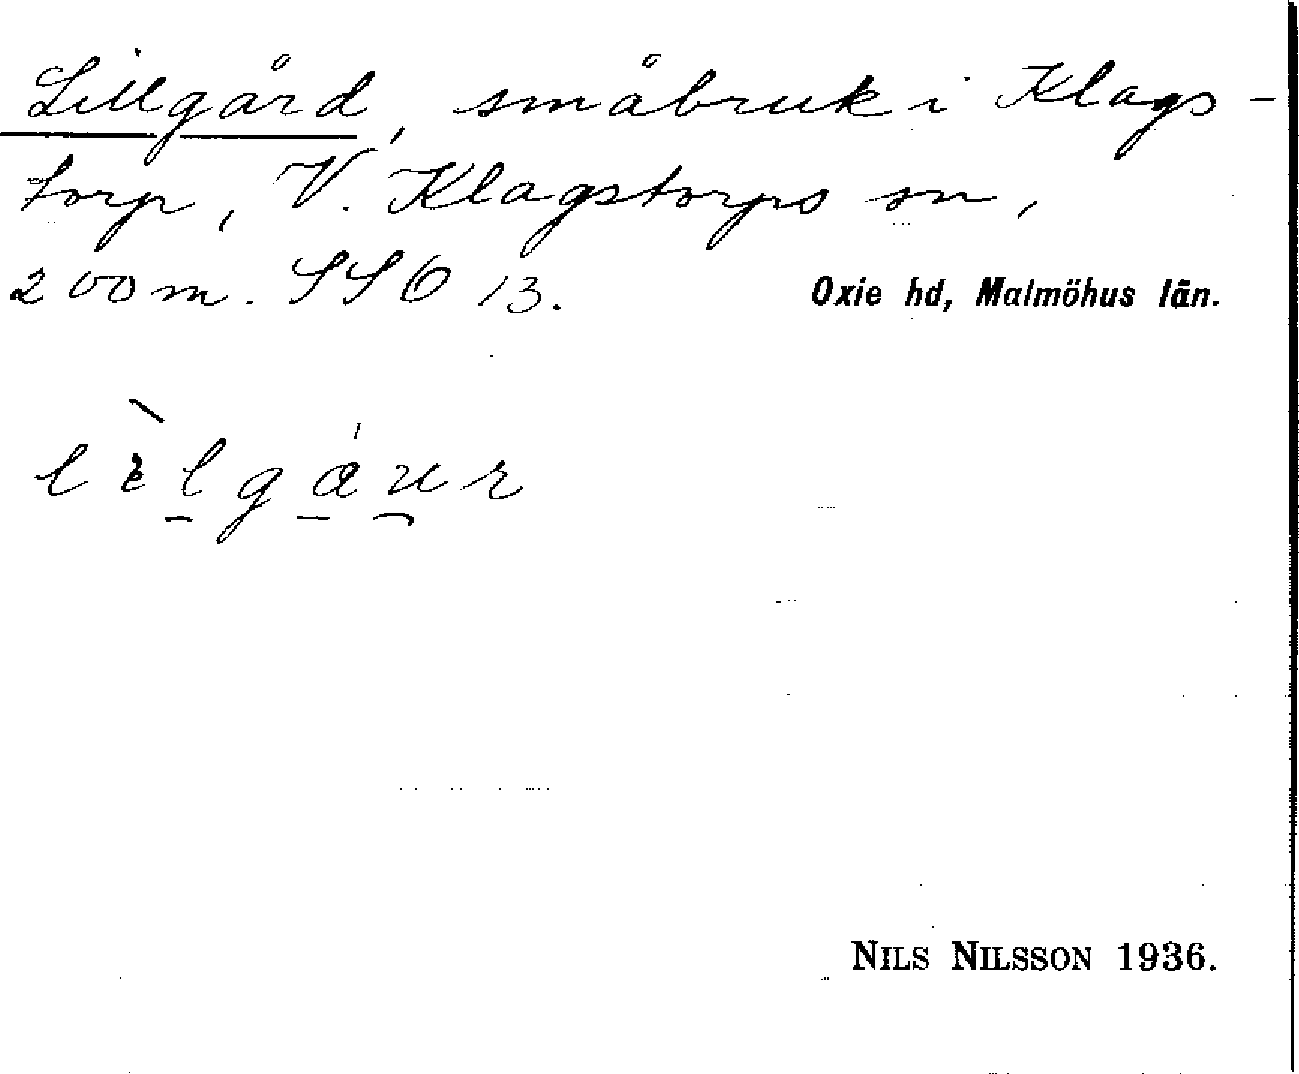 Lillgård, småbruk i Klags-
torp, V. Klagstorps sn,
200 m. SSO 13.
Oxie hd, Malmöhus län.
NILS NILSSON 1936.